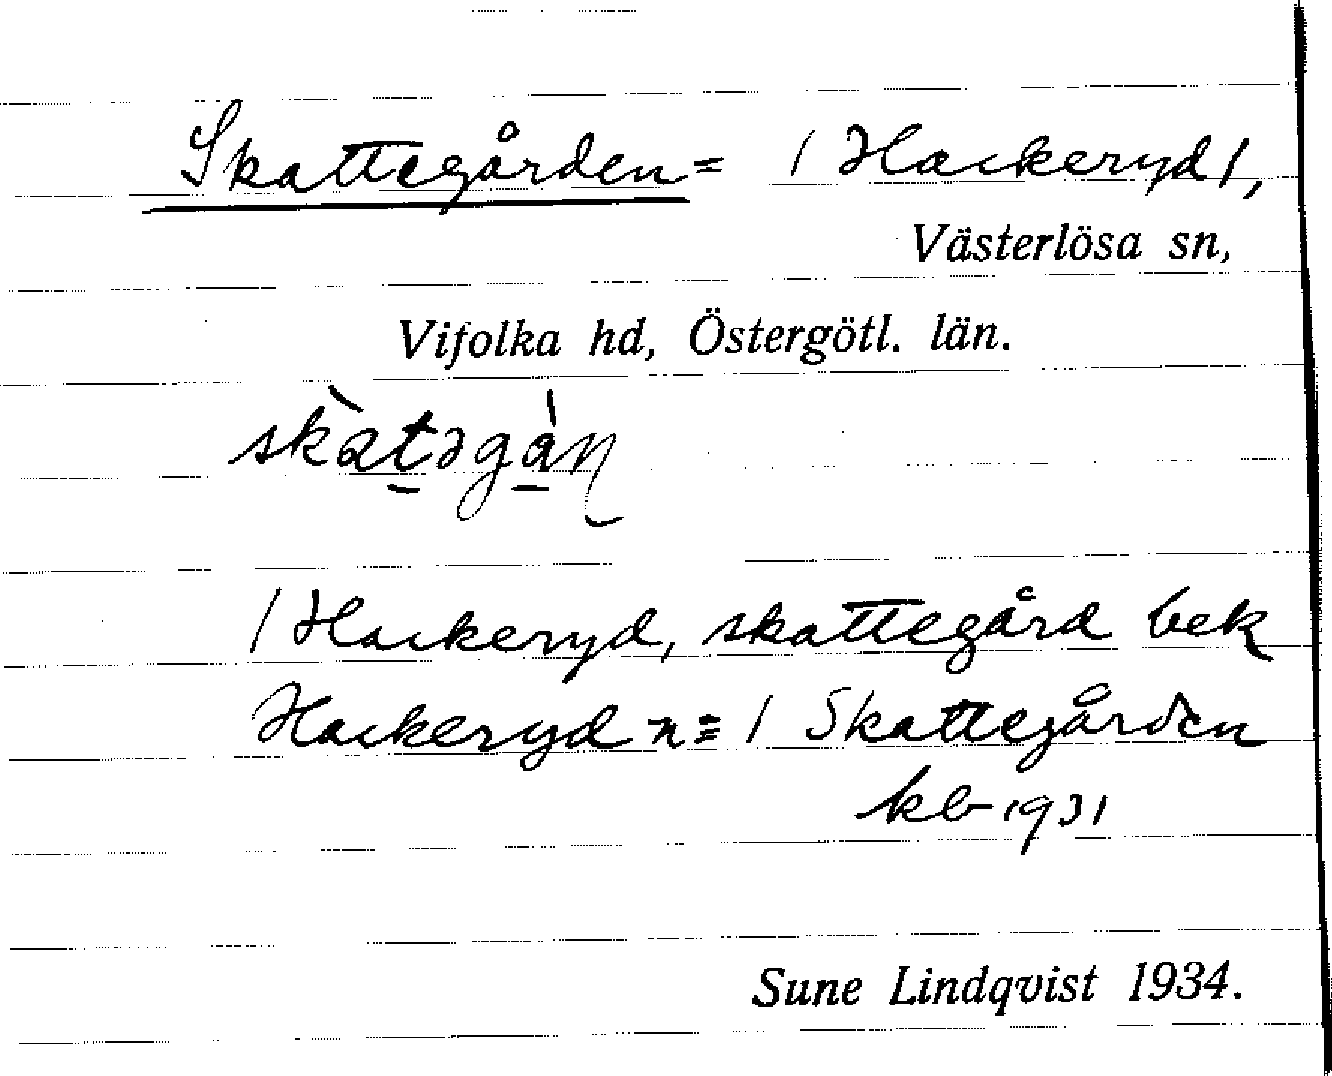 Skattegården = / Hackeryd /,
Västerlösa sn,
Vifolka hd, Östergötl. län.
skàtəgàɳ
/ Hackeryd, skattegård bek
Hackeryd n = / Skattegården
kb 1931
Sune Lindqvist 1934.